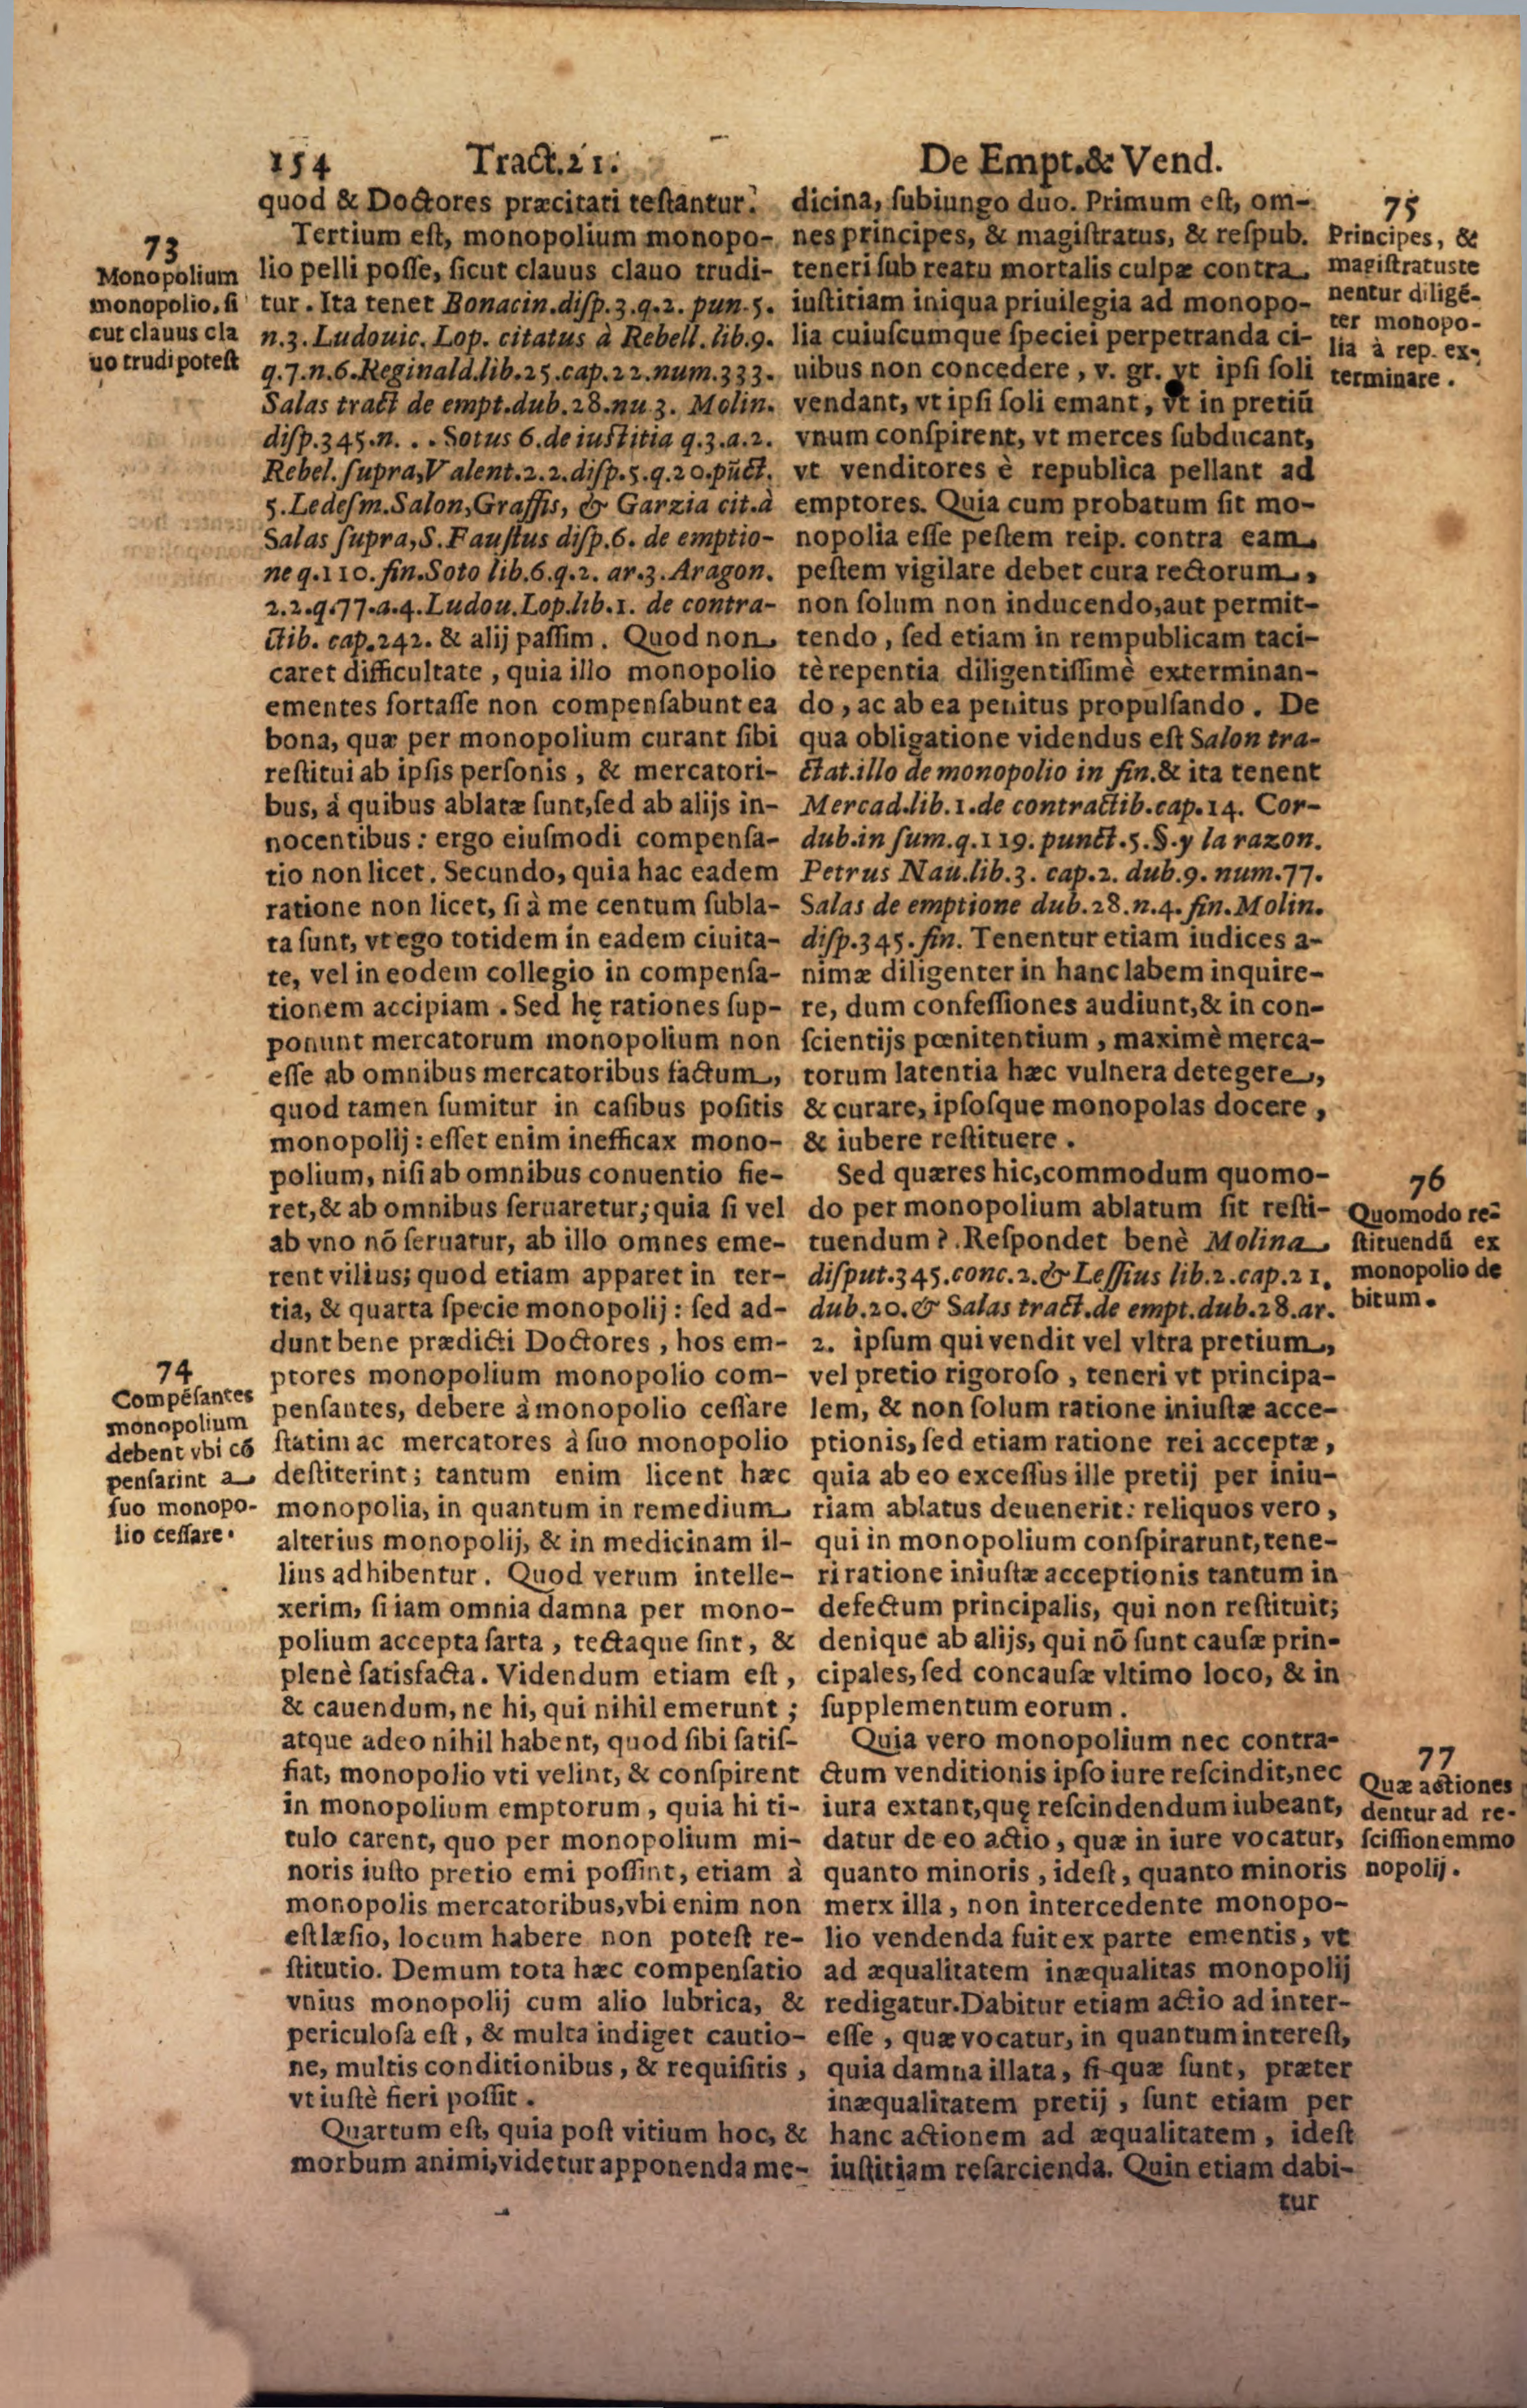 154 Tract.21. De Empt.& Vend.
quod & Doctores præcitati teſtantur.
73
Monopolium
monopolio, ſi
cut clauus cla
uo trudi poteſt
Tertium eſt, monopolium monopo-
lio pelli poſſe, ſicut clauus clauo trudi-
tur. Ita tenet Bonacin.diſp.3.q.2. pun.5.
n.3. Ludouic. Lop. citatus à Rebell. lib.9.
q.7.n.6.Reginald.lib.25.cap.22.num.333.
Salas tract de empt.dub.28.nu 3. Molin.
diſp.345.n. . . Sotus 6.de iuſtitia q.3.a.2.
Rebel. ſupra, Valent.2.2.diſp.5.q.20.pūct.
5.Ledeſm.Salon,Graffis, & Garzia cit.à
Salas ſupra, S.Fauſtus diſp.6. de emptio-
ne q.110.fin.Soto lib.6.q.2. ar.3.Aragon.
2.2.q.77.a.4.Ludou.Lop.lib.1. de contra-
ctib. cap.242. & alij paſſim. Quod non
caret difficultate, quia illo monopolio
ementes fortaſſe non compenſabunt ea
bona, quæ per monopolium curant ſibi
reſtitui ab ipſis perſonis, & mercatori-
bus, à quibus ablatæ ſunt, ſed ab alijs in-
nocentibus: ergo eiuſmodi compenſa-
tio non licet. Secundo, quia hac eadem
ratione non licet, ſi à me centum ſubla-
ta ſunt, vt ego totidem in eadem ciuita-
te, vel in eodem collegio in compenſa-
tionem accipiam. Sed hę rationes ſup-
ponunt mercatorum monopolium non
eſſe ab omnibus mercatoribus factum,
quod tamen ſumitur in caſibus poſitis
monopolij: eſſet enim inefficax mono-
polium, niſi ab omnibus conuentio fie-
ret, & ab omnibus ſeruaretur; quia ſi vel
ab vno nō ſeruatur, ab illo omnes eme-
rent vilius; quod etiam apparet in ter-
tia, & quarta ſpecie monopolij: ſed ad-
dunt bene prædicti Doctores, hos em-
74
Compēſantes
monopolium
debent vbi cō
penſarint a
ſuo monopo-
lio ceſſare.
ptores monopolium monopolio com-
penſantes, debere à monopolio ceſſare
ſtatim ac mercatores à ſuo monopolio
deſtiterint; tantum enim licent hæc
monopolia, in quantum in remedium
alterius monopolij, & in medicinam il-
lius adhibentur. Quod verum intelle-
xerim, ſi iam omnia damna per mono-
polium accepta ſarta, tectaque ſint, &
plenè ſatisfacta. Videndum etiam eſt,
& cauendum, ne hi, qui nihil emerunt;
atque adeo nihil habent, quod ſibi ſatiſ-
fiat, monopolio vti velint, & conſpirent
in monopolium emptorum, quia hi ti-
tulo carent, quo per monopolium mi-
noris iuſto pretio emi poſſint, etiam à
monopolis mercatoribus, vbi enim non
eſt læſio, locum habere non poteſt re-
ſtitutio. Demum tota hæc compenſatio
vnius monopolij cum alio lubrica, &
periculoſa eſt, & multa indiget cautio-
ne, multis conditionibus, & requiſitis,
vt iuſtè fieri poſſit.
Quartum eſt, quia poſt vitium hoc, &
morbum animi, videtur apponenda me-
dicina, ſubiungo duo. Primum eſt, om-
75
Principes, &
magiſtratus te
nentur diligē-
ter monopo-
lia à rep. ex-
terminare.
nes principes, & magiſtratus, & reſpub.
teneri ſub reatu mortalis culpæ contra
iuſtitiam iniqua priuilegia ad monopo-
lia cuiuſcumque ſpeciei perpetranda ci-
uibus non concedere, v. gr. vt ipſi ſoli
vendant, vt ipſi ſoli emant, vt in pretiū
vnum conſpirent, vt merces ſubducant,
vt venditores è republica pellant ad
emptores. Quia cum probatum ſit mo-
nopolia eſſe peſtem reip. contra eam
peſtem vigilare debet cura rectorum,
non ſolum non inducendo, aut permit-
tendo, ſed etiam in rempublicam taci-
tè repentia diligentiſſimè exterminan-
do, ac ab ea penitus propulſando. De
qua obligatione videndus eſt Salon tra-
ctat.illo de monopolio in fin.& ita tenent
Mercad.lib.1.de contractib.cap.14. Cor-
dub.in ſum.q.119.punct.5.§.y la razon.
Petrus Nau.lib.3. cap.2. dub.9. num.77.
Salas de emptione dub.28.n.4.fin.Molin.
diſp.345.fin. Tenentur etiam iudices a-
nimæ diligenter in hanc labem inquire-
re, dum confeſſiones audiunt, & in con-
ſcientijs pœnitentium, maximè merca-
torum latentia hæc vulnera detegere,
& curare, ipſoſque monopolas docere,
& iubere reſtituere.
76
Quomodo re-
ſtituendū ex
monopolio de
bitum.
Sed quæres hic, commodum quomo-
do per monopolium ablatum ſit reſti-
tuendum? Reſpondet benè Molina
diſput.345.conc.2.& Leſſius lib.2.cap.21.
dub.20.& Salas tract.de empt.dub.28.ar.
2. ipſum qui vendit vel vltra pretium,
vel pretio rigoroſo, teneri vt principa-
lem, & non ſolum ratione iniuſtæ acce-
ptionis, ſed etiam ratione rei acceptæ,
quia ab eo exceſſus ille pretij per iniu-
riam ablatus deuenerit: reliquos vero,
qui in monopolium conſpirarunt, tene-
ri ratione iniuſtæ acceptionis tantum in
defectum principalis, qui non reſtituit;
denique ab alijs, qui nō ſunt cauſæ prin-
cipales, ſed concauſæ vltimo loco, & in
ſupplementum eorum.
77
Quæ actiones
dentur ad re-
ſciſſionem mo
nopolij.
Quia vero monopolium nec contra-
ctum venditionis ipſo iure reſcindit, nec
iura extant, quę reſcindendum iubeant,
datur de eo actio, quæ in iure vocatur,
quanto minoris, ideſt, quanto minoris
merx illa, non intercedente monopo-
lio vendenda fuit ex parte ementis, vt
ad æqualitatem inæqualitas monopolij
redigatur. Dabitur etiam actio ad inter-
eſſe, quæ vocatur, in quantum intereſt,
quia damna illata, ſi quæ ſunt, præter
inæqualitatem pretij, ſunt etiam per
hanc actionem ad æqualitatem, ideſt
iuſtitiam reſarcienda. Quin etiam dabi-
tur